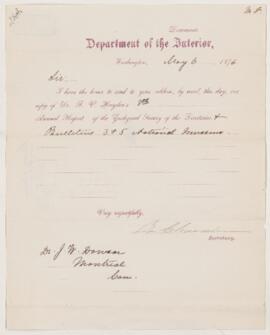 Document
Department of the Interior,
Washington, May 6 1876
Sir:
I have the honor to send to your address, by mail, this day, one
copy of Dr. F. V. Hayden's 8th
Annual Report of the Geological Survey of the Territories &
Bulletins 3 & 5 National Museum
Very respectfully,
Secretary.
Dr. J. W. Dawson
Montreal
Can.